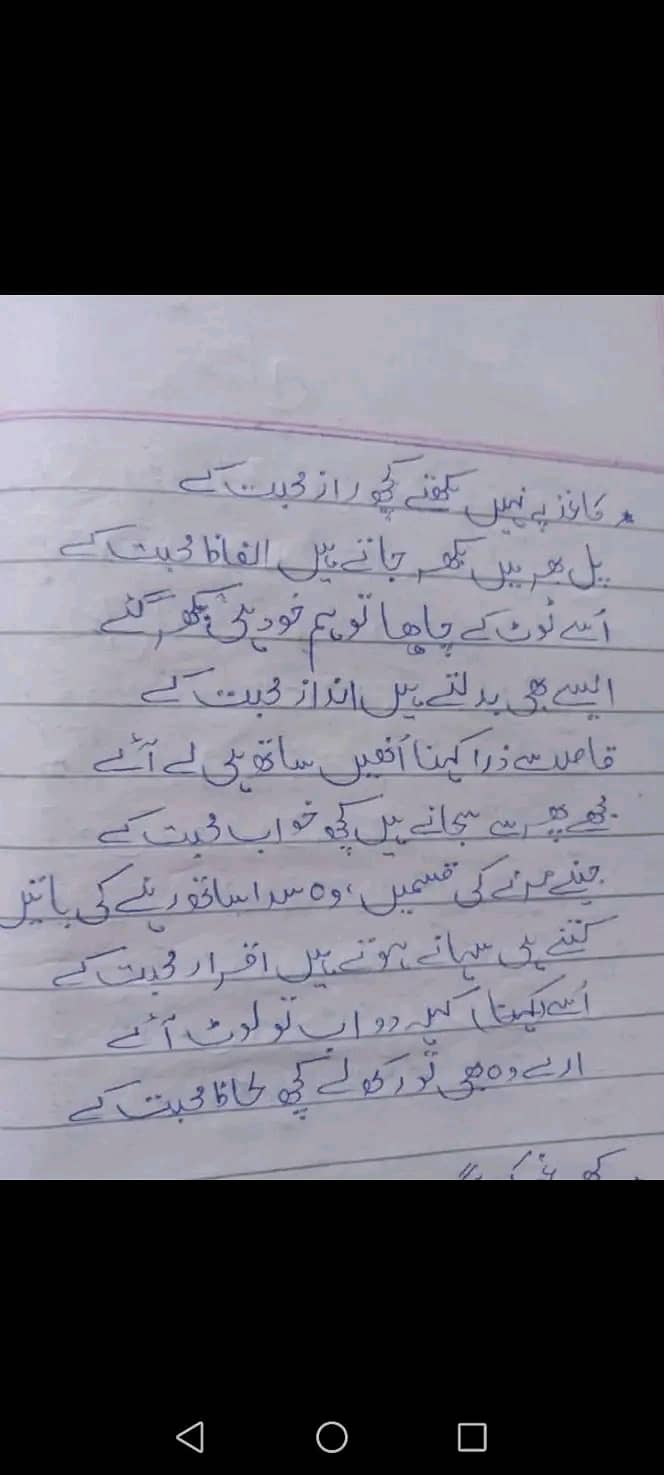 * کاغذ پہ نہیں لکھتے کچھ راز محبت کے
پل بھر میں بکھر جاتے ہیں الفاظ محبت کے
اُسے ٹوٹ کے چاہا تو ہم خود ہی بکھر گئے
ایسے بھی بدلتے ہیں انداز محبت کے
قاصد سے ذرا کہنا اُنھیں ساتھ ہی لے آئے
مجھے پھر سے سجانے ہیں کچھ خواب محبت کے
جینے مرنے کی قسمیں، وہ سدا ساتھ رہنے کی باتیں
کتنے ہی سہانے ہوتے ہیں اقرار محبت کے
اُسے (کہنا) کہہ دو اب تو لوٹ آئے
ارے وہ بھی تو رکھ لے کچھ لحاظ محبت کے